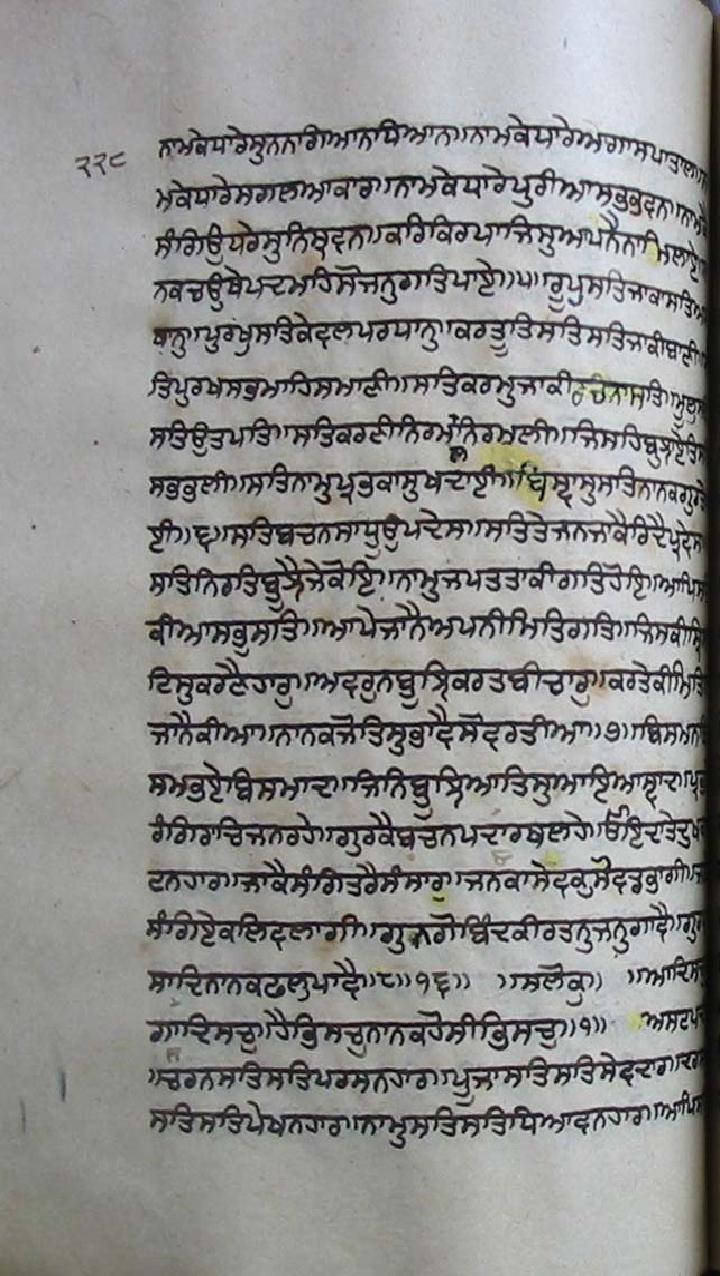 ੨੨੮
ਨਾਮਕੇਧਾਰੇਸੁਨਨਗਿਆਨਧਿਆਨ॥ਨਾਮਕੇਧਾਰੇਆਗਾਸਪਾਤਾਲ॥ਨਾ
ਮਕੇਧਾਰੇਸਗਲਆਕਾਰ॥ਨਾਮਕੇਧਾਰੇਪੁਰੀਆਸਭਭਵਨ॥ਨਾਮਕੈ
ਸੰਗਿਉਧਰੇਸੁਨਿਸ੍ਰਵਨ॥ਕਰਿਕਿਰਪਾਜਿਸੁਆਪਨੈਨਾਮਿਲਾਏ॥
ਨਕਚਉਥੇਪਦਮਹਿਸੋਜਨੁਗਤਿਪਾਏ॥੫॥ਰੂਪੁਸਤਿਜਾਕਾਸਤਿਅ
ਥਾਨੁ॥ਪੁਰਖੁਸਤਿਕੇਵਲਪਰਧਾਨੁ॥ਕਰਤੂਤਿਸਤਿਸਤਿਜਾਕੀਬਾਣੀ॥
ਤਿਪੁਰਖਸਭਮਾਹਿਸਮਾਣੀ॥ਸਤਿਕਰਮੁਜਾਕੀਰਚਨਾਸਤਿ॥ਮੂਲੁ
ਸਤਿਉਤਪਤਿ॥ਸਤਿਕਰਣੀਨਿਰਮਲਨਿਰਮਲੀ॥ਜਿਸਹਿਬੁਝਾਏਤਿਸ
ਸਭਭਲੀ॥ਸਤਿਨਾਮੁਪ੍ਰਭਕਾਸੁਖਦਾਈ॥ਬਿਸ੍ਵਾਸੁਸਤਿਨਾਨਕਗੁਰਤੇ
ਈ॥੬॥ਸਤਿਬਚਨਸਾਧੂਉਪਦੇਸ॥ਸਤਿਤੇਜਨਜਾਕੈਰਿਦੈਪ੍ਰਵੇਸ
ਸਤਿਨਿਰਤਿਬੂਝੈਜੇਕੋਇ॥ਨਾਮੁਜਪਤਤਾਕੀਗਤਿਹੋਇ॥ਆਪਿਸ
ਕੀਆਸਭੁਸਤਿ॥ਆਪੇਜਾਨੈਅਪਨੀਮਿਤਿਗਤਿ॥ਜਿਸਕੀਸ੍ਰਿ
ਟਿਸੁਕਰਣੈਹਾਰੁ॥ਅਵਰੁਨਬੂਝਿਕਰਤਬੀਚਾਰੁ॥ਕਰਤੇਕੀਮਿਤਿ
ਜਾਨੈਕੀਆ॥ਨਾਨਕਜੋਤਿਸੁਭਾਵੈਸੋਵਰਤੀਆ॥੭॥ਬਿਸਮਨਬਿ
ਸਮਭਏਬਿਸਮਾਦ॥ਜਿਨਿਬੂਝਿਆਤਿਸੁਆਇਆਸ੍ਵਾਦ॥ਪ੍ਰਭ
ਰੰਗਿਰਾਚਿਜਨਰਹੇ॥ਗੁਰਕੈਬਚਨਪਦਾਰਥਲਹੇ॥ਓਇਦਾਤੇਦੁਖ
ਟਨਹਾਰ॥ਜਾਕੈਸੰਗਿਤਰੈਸੰਸਾਰੁ॥ਜਨਕਾਸੇਵਕੁਸੋਵਡਭਾਗੀ॥
ਸੰਗਿਏਕਲਿਵਲਾਗੀ॥ਗੁਨਗੋਬਿੰਦਕੀਰਤਨੁਜਨੁਗਾਵੈ॥ਗੁਰ
ਸਾਦਿਨਾਨਕਫਲੁਪਾਵੈ॥੮॥੧੬॥ ॥ਸਲੋਕੁ॥ ॥ਆਦਿਸ
ਗਾਦਿਸਚੁ॥ਹੈਭਿਸਚੁਨਾਨਕਹੋਸੀਭਿਸਚੁ॥੧॥ ਅਸਟਪ
॥ਚਰਨਸਤਿਸਤਿਪਰਸਨਹਾਰ॥ਪੂਜਾਸਤਿਸਤਿਸੇਵਦਾਰ॥ਦਰਸ
ਸਤਿਸਤਿਪੇਖਨਹਾਰ॥ਨਾਮੁਸਤਿਸਤਿਧਿਆਵਨਹਾਰ॥ਆਪਿਸ